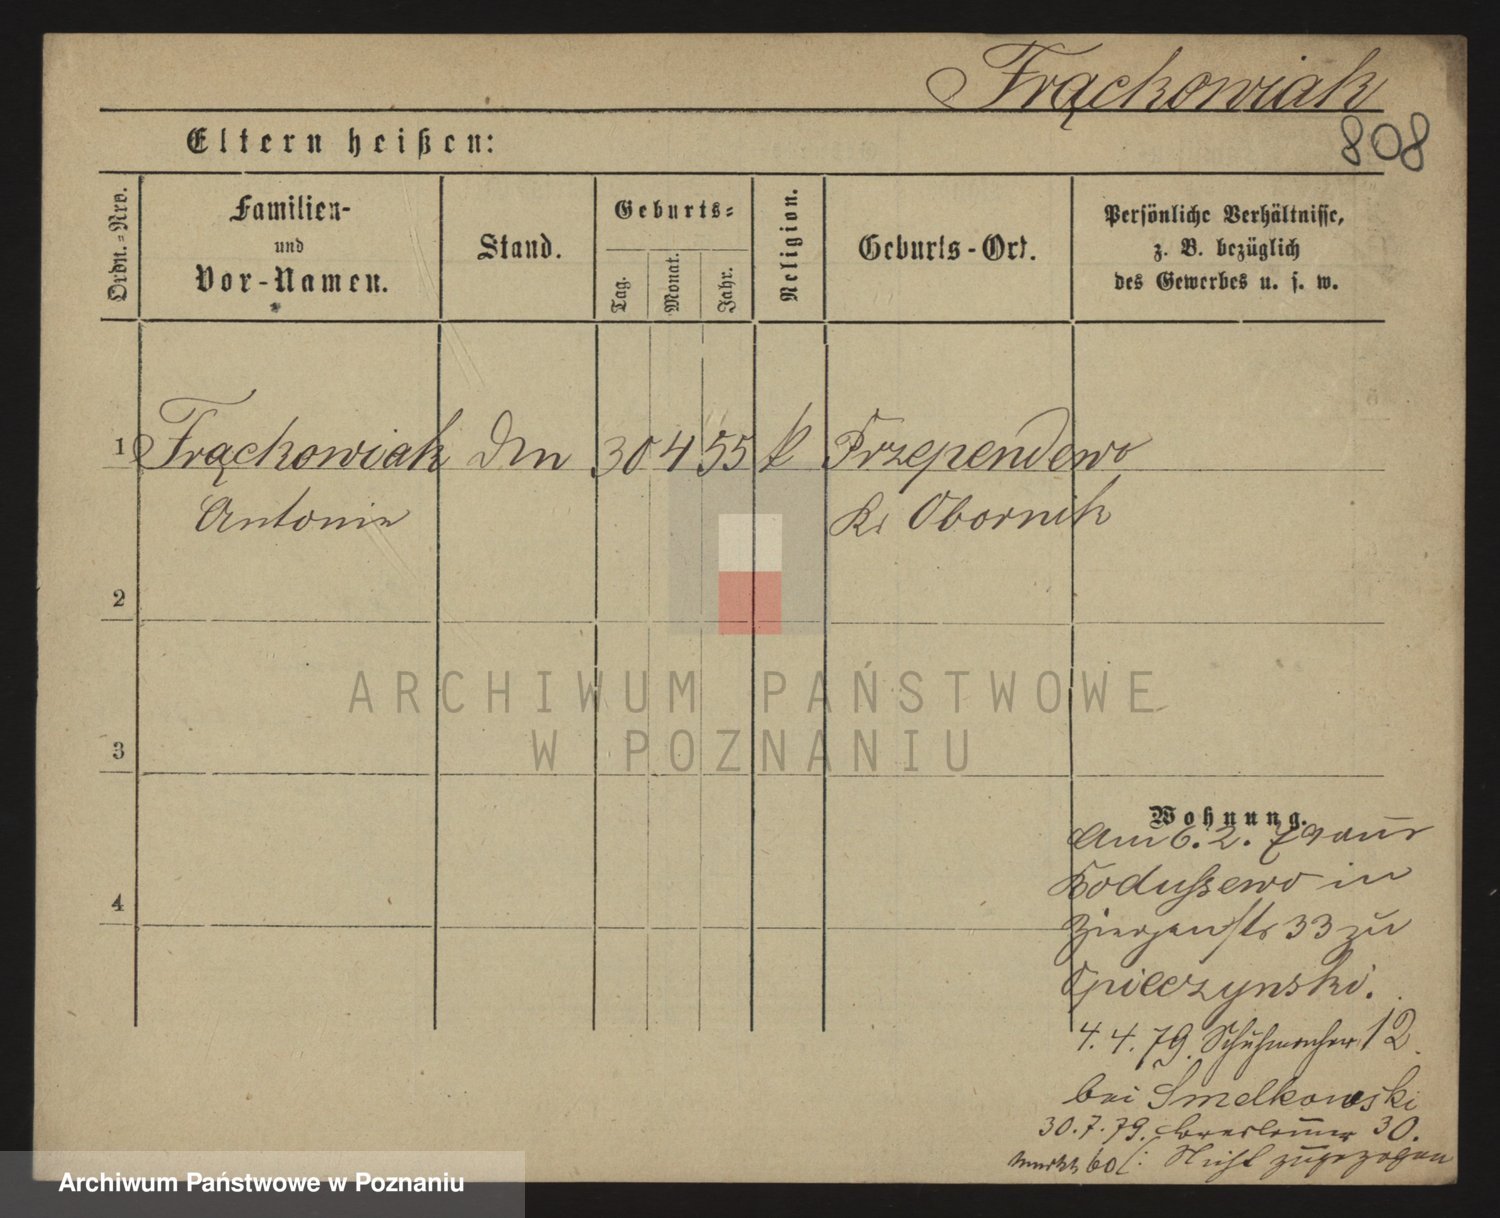 Frąckowiak
808
Eltern heißen:
Ordn.-Nro.
Familien-
und
Vor-Namen.
Stand.
Geburts-
Tag.
Monat.
Jahr.
Religion.
Geburts-Ort.
Persönliche Verhältnisse,
z. B. bezüglich
des Gewerbes u. s. w.
1 Frąckowiak Dm 30 4 55 k Przependowo
Antonie Kr Obornik
2
3
4
ARCHIWUM PAŃSTWOWE
W POZNANIU
Wohnung.
Am 6. 2. 79 aus
Boduszewo in
Ziegenstr 33 zu
Spieczynski.
4. 4. 79. Schuhmacher 12
bei Smelkowski
30. 7. 79. Breslauer 30.
60 Nicht zugezogen
Archiwum Państwowe w Poznaniu